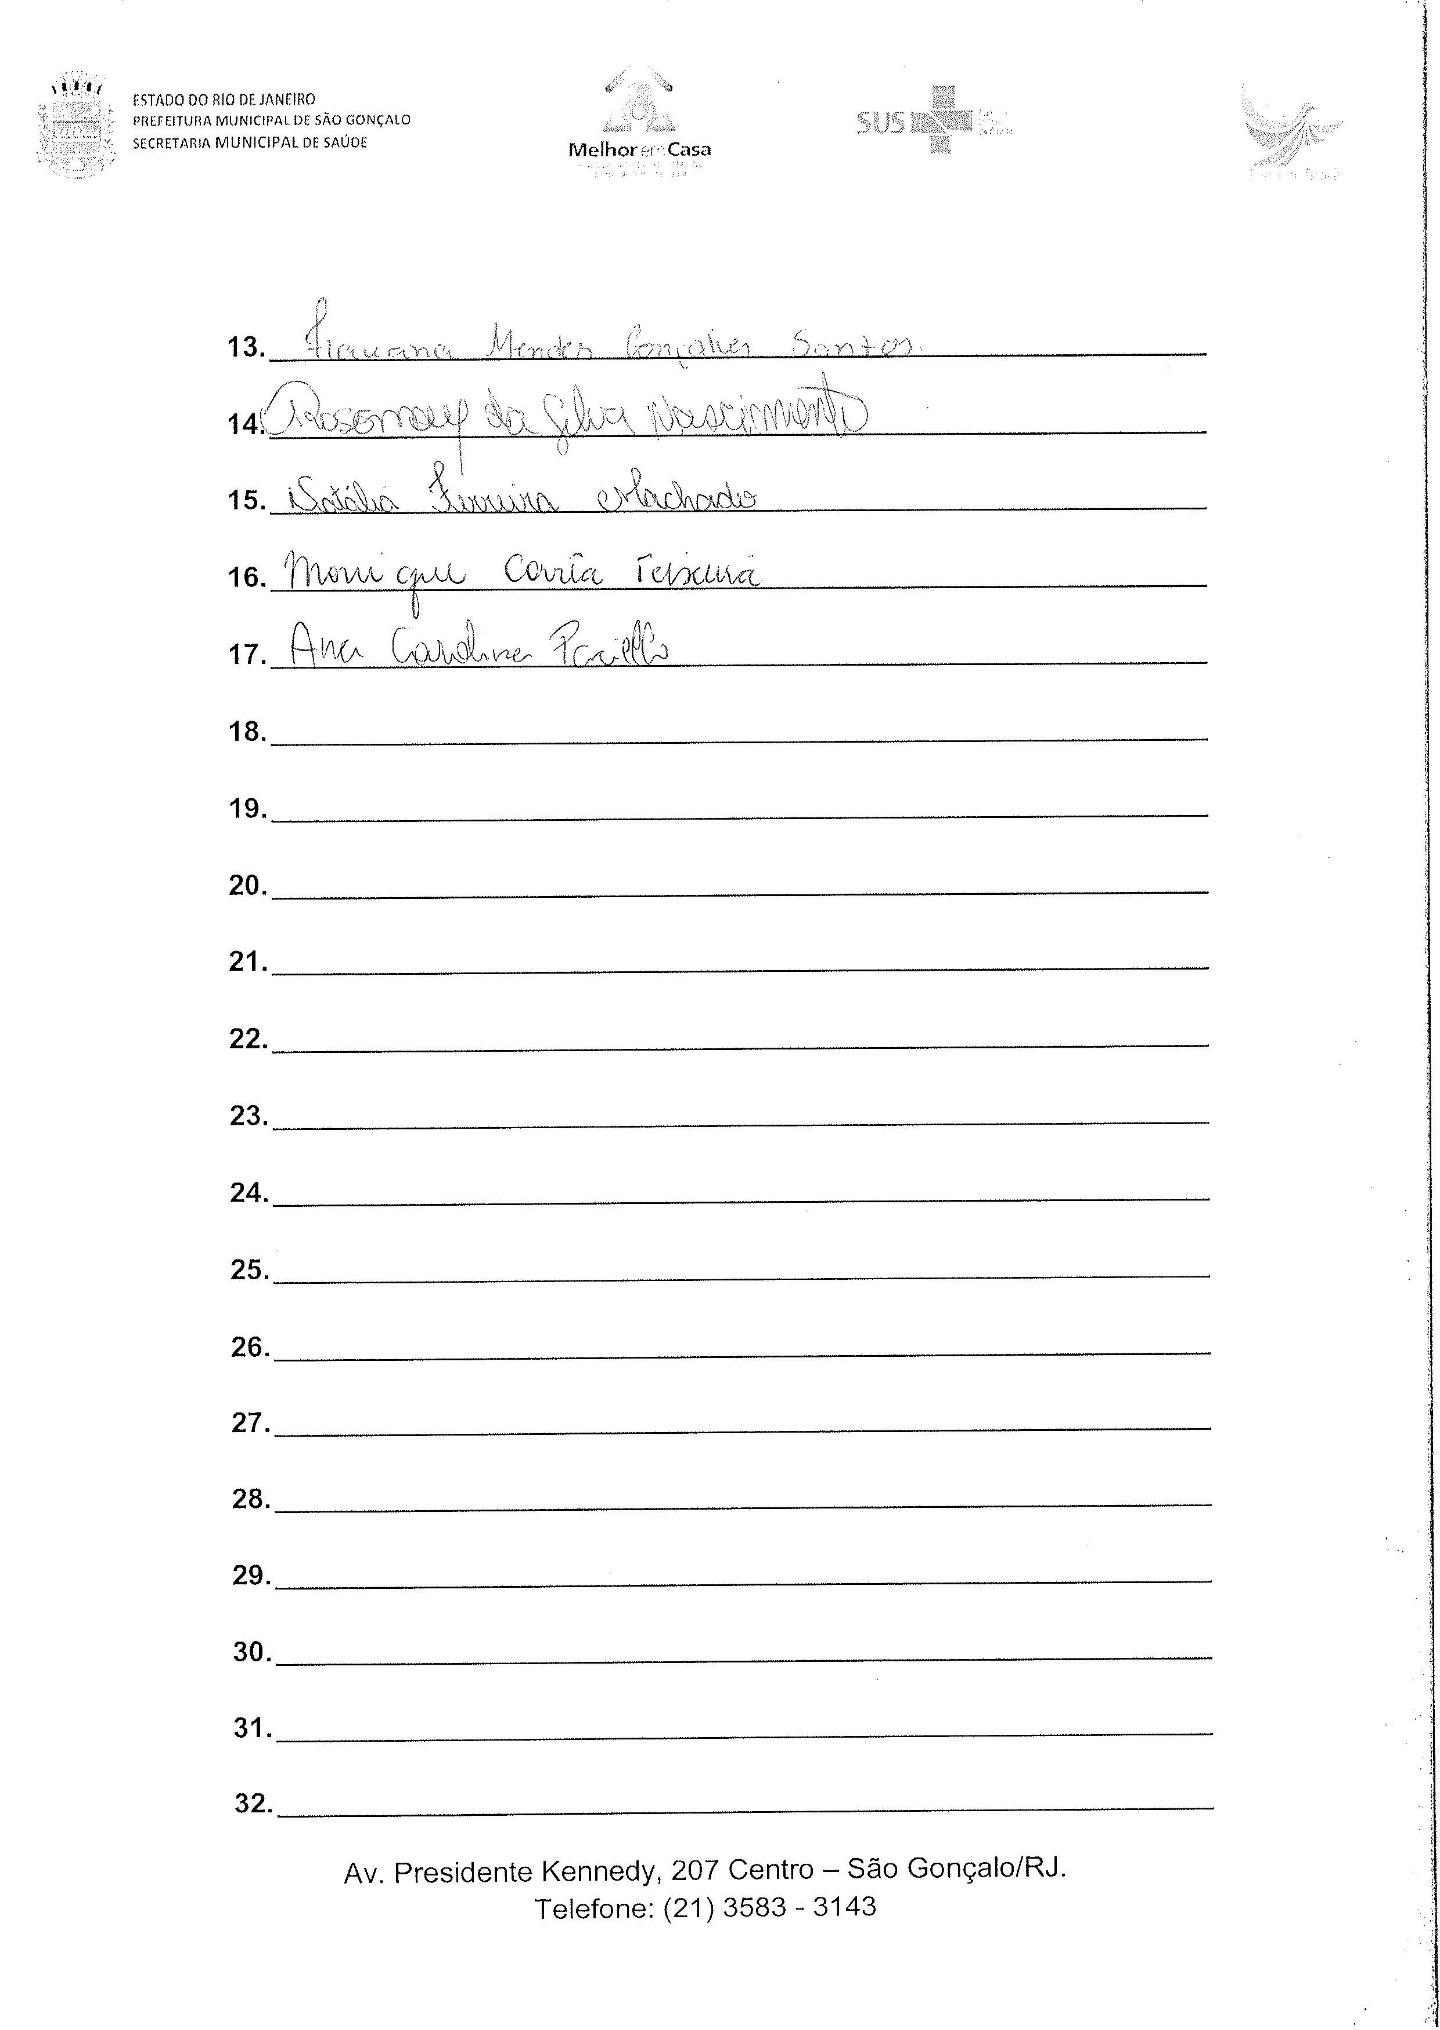 ESTADO DO RIO DE JANEIRO
PREFEITURA MUNICIPAL DE SÃO GONÇALO
SECRETARIA MUNICIPAL DE SAÚDE
Melhor em Casa
SUS
13. Mendes Gonçalves Santos
14. Rosemary da Silva Nascimento
15. Natália Ferreira Machado
16. Monique Corrêa Teixeira
17. Ana Carolina
18.
19.
20.
21.
22.
23.
24.
25.
26.
27.
28.
29.
30.
31.
32.
Av. Presidente Kennedy, 207 Centro – São Gonçalo/RJ.
Telefone: (21) 3583 - 3143